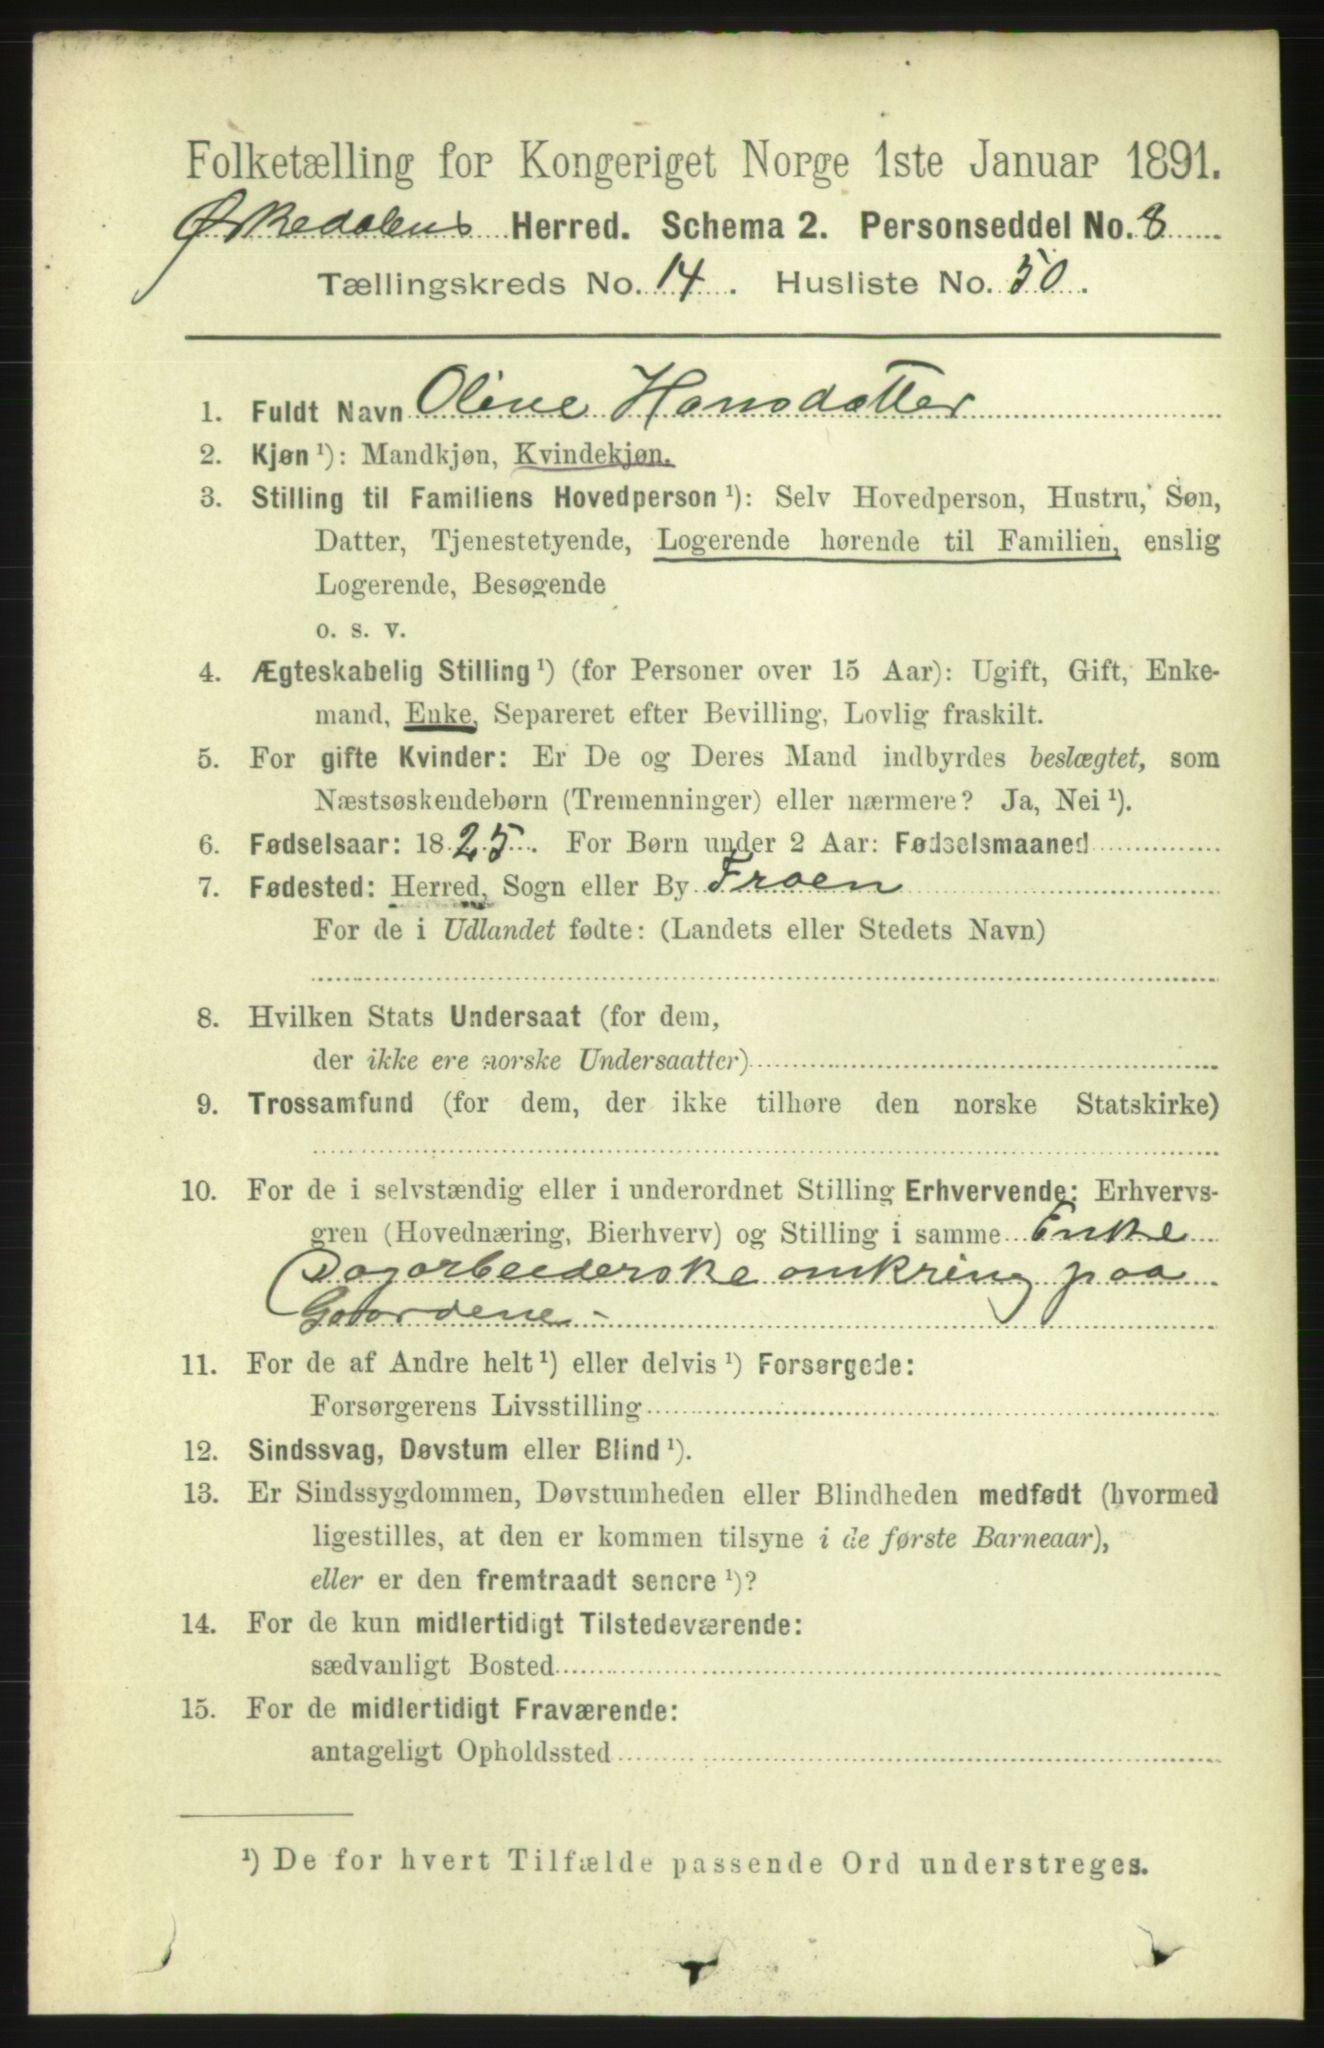 Folketælling for Kongeriget Norge 1ste Januar 1891.
Ørkedalens Herred. Schema 2. Personseddel No. 8
Tællingskreds No. 14. Husliste No. 50.
1. Fuldt Navn Oline Hansdatter
2. Kjøn ¹): Mandkjøn, Kvindekjøn.
3. Stilling til Familiens Hovedperson ¹): Selv Hovedperson, Hustru, Søn,
Datter, Tjenestetyende, Logerende hørende til Familien, enslig
Logerende, Besøgende
o. s. v.
4. Ægteskabelig Stilling ¹) (for Personer over 15 Aar): Ugift, Gift, Enke-
mand, Enke, Separeret efter Bevilling, Lovlig fraskilt.
5. For gifte Kvinder: Er De og Deres Mand indbyrdes beslægtet, som
Næstsøskendebørn (Tremenninger) eller nærmere? Ja, Nei ¹).
6. Fødselsaar: 1825. For Børn under 2 Aar: Fødselsmaaned
7. Fødested: Herred, Sogn eller By Froen
For de i Udlandet fødte: (Landets eller Stedets Navn)
8. Hvilken Stats Undersaat (for dem,
der ikke ere norske Undersaatter)
9. Trossamfund (for dem, der ikke tilhøre den norske Statskirke)
10. For de i selvstændig eller i underordnet Stilling Erhvervende: Erhvervs-
gren (Hovednæring, Bierhverv) og Stilling i samme Enke
Dagarbeiderske omkring paa
Gaardene -
11. For de af Andre helt ¹) eller delvis ¹) Forsørgede:
Forsørgerens Livsstilling
12. Sindssvag, Døvstum eller Blind ¹).
13. Er Sindssygdommen, Døvstumheden eller Blindheden medfødt (hvormed
ligestilles, at den er kommen tilsyne i de første Barneaar),
eller er den fremtraadt senere ¹)?
14. For de kun midlertidigt Tilstedeværende:
sædvanligt Bosted
15. For de midlertidigt Fraværende:
antageligt Opholdssted
¹) De for hvert Tilfælde passende Ord understreges.